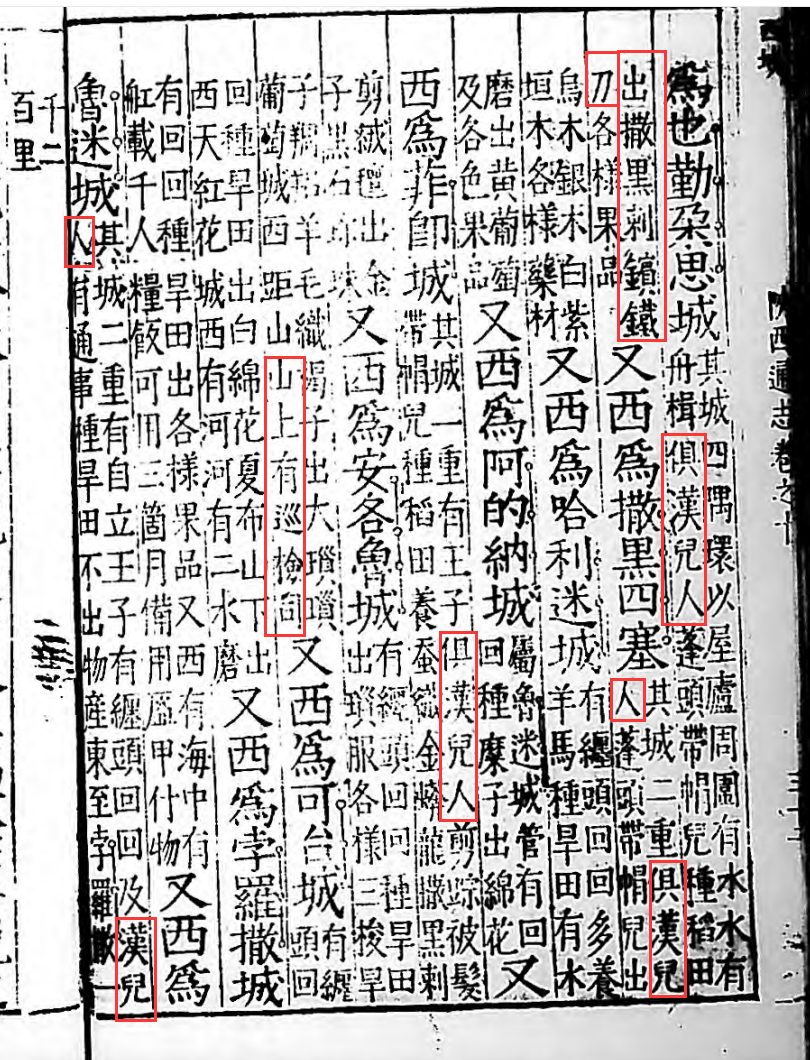 西域
陝西通志卷之十
爲也勤朶思城
其城四隅環以屋廬周圍有水水有
舟楫俱漢兒人蓬頭帶帽兒種稻田
出撒黑剌鑌鐵
刀各様果品
又西爲撒黑四塞
其城二重俱漢兒
人蓬頭帶帽兒出
烏木銀木白紫
垣木各樣藥材
又西爲哈利迷城
有纏頭回回多養
羊馬種旱田有水
磨出黄葡萄
及各色果品
又西爲阿的納城
屬魯迷城管有回
回種糜子出綿花
又
西爲菲即城
其城一重有王子俱漢兒人剪踪被髮
帶帽兒種稻田養蚕織金蟒龍撒黑剌
剪絨氊出金
子黑石珍珠
又西爲安各魯城
有纏頭回回種旱田
出瑣服各様三梭旱
子羯羊毛織褐子出大瑣嗩
葡萄城西距山山上有巡檢司
又西爲可台城
有纏
頭回
回種旱田出白綿花夏布山下出
西天紅花城西有河河有二水磨
又西爲孛羅撒城
有回回種旱田出各様果品又西有海中有
舡載千人糧飯可用三箇月備用盔甲什物
又西爲
魯迷城
其城二重有自立王子有纏頭回回及漢兒
人有通事種旱田不出物産東至孛羅撒一
千二
百里